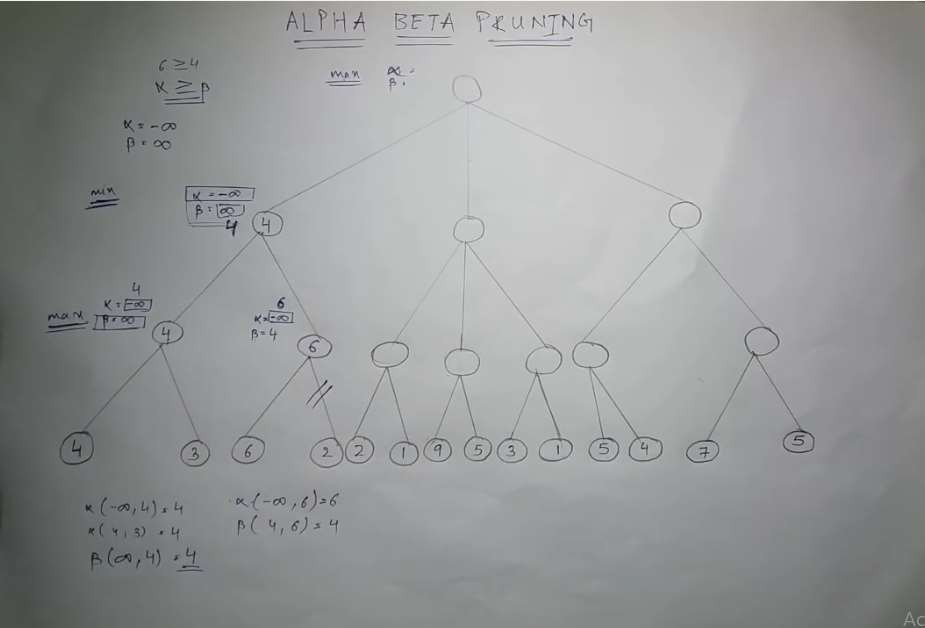 ALPHA BETA PRUNING
6 ≥ 4
α ≥ β
max α =
β =
α = -∞
β = ∞
min
α = -∞
β = ∞
4
4
4
max α = -∞
β = ∞
4
6
α = -∞
β = 4
6
4 3 6 2 2 1 9 5 3 1 5 4 7 5
α(-∞, 4) = 4
α(4, 3) = 4
β(∞, 4) = 4
α(-∞, 6) = 6
β(4, 6) = 4